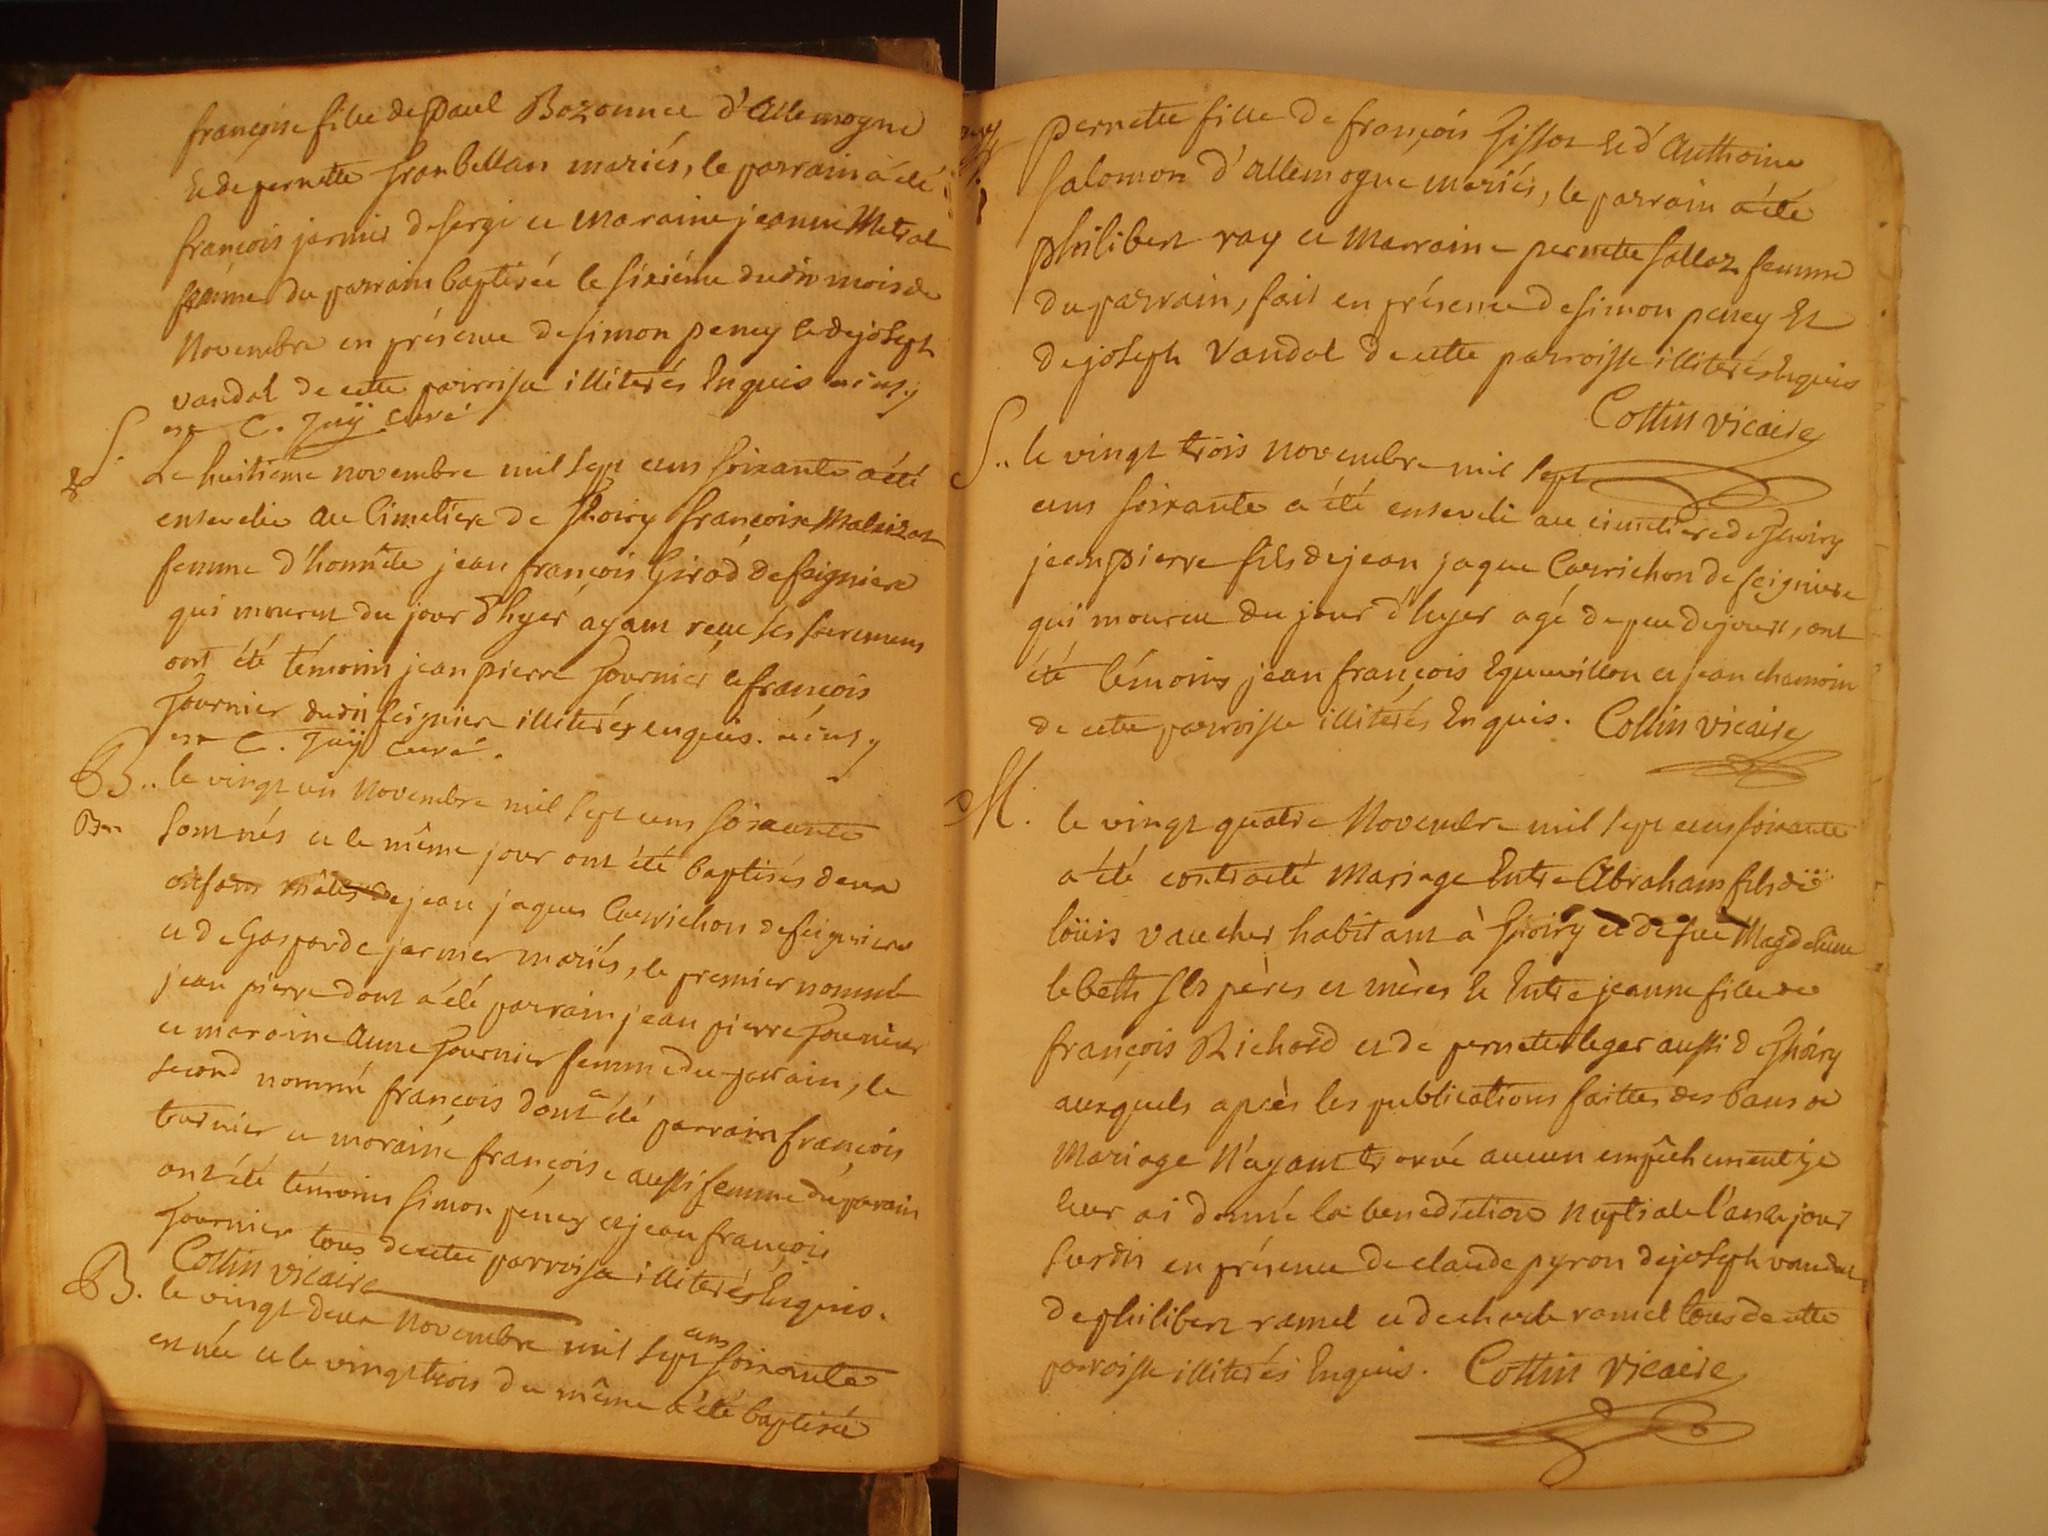 françoise fille de paul Bozonnet d'Allemogne
Et de pernette franbellan mariés, le parrain a été
françois jarnier de sergi et maraine jeanne Metral
femme du parrain baptisée le sixième dudit mois de
Novembre en présence de simon peney et de joseph
vandal de cette parroisse illiterés Enquis ainsy
est C. Juÿ Curé
S. Le huitieme novembre mil sept cens soixante a été
ensevelie au Cimetiere de Thoiry françoise
femme d'honnête jean françois Girod de feigniere
qui mourut du jour d'hyer ayant reçu les sacremens
ont été témoins jean pierre fournier et françois
fournier dudit feigniere illiterés enquis. ainsy
est C. Juÿ Curé.
B.. le vingt un Novembre mil sept cens soixante
sont nés et le même jour ont été baptisés deux
enfans mâles de jean jaques Carrichon de feigniere
et de Gasparde jarnier mariés, le premier nommé
jean pierre dont a été parrain jean pierre fournier
et maraine Anne fournier femme du parrain, le
second nommé françois dont a été parrain françois
tournier et maraine françoise aussi femme du parain
ont été témoins simon peney et jean françois
fournier tous de cette parroisse illiterés Enquis.
Collin vicaire
B. le vingt deux Novembre mil sept cens soixante
est née et le vingt trois du même a été baptisée
pernette fille de françois Et d'Anthoine
salomon d'allemogne mariés, le parrain a été
philibert ray et Marraine pernette sallaz femme
du parrain, fait en présence de simon peney Et
de joseph Vandal de cette parroisse illiterés Enquis
Collin vicaire
S.. le vingt trois novembre mil sept
cens soixante a été enseveli au cimetiere de Thoiry
jean pierre fils de jean jaque Carrichon de feigniere
qui mourut du jour d'hyer agé de peu de jours, ont
été témoins jean françois Eguuvillon et jean chamoin
de cette parroisse illiterés Enquis. Collin vicaire
M. le vingt quatre Novembre mil sept cens soixante
a été contracté Mariage Entre Abraham fils de
loüis vaucher habitant à Thoiry et de fuë Magdelene
lebeth ses pères et mères Et Entre jeanne fille de
françois Richard et de pernette leger aussi de Thoiry
auxquels après les publications faittes des bans de
Mariage N'ayant trouvé aucun empêchement je
leur ai donné la benediction Nuptiale l'an et jour
susdit en présence de claude pyron de joseph vandal
de philibert ramel et de charle ramel tous de cette
parroisse illiterés Enquis. Collin vicaire